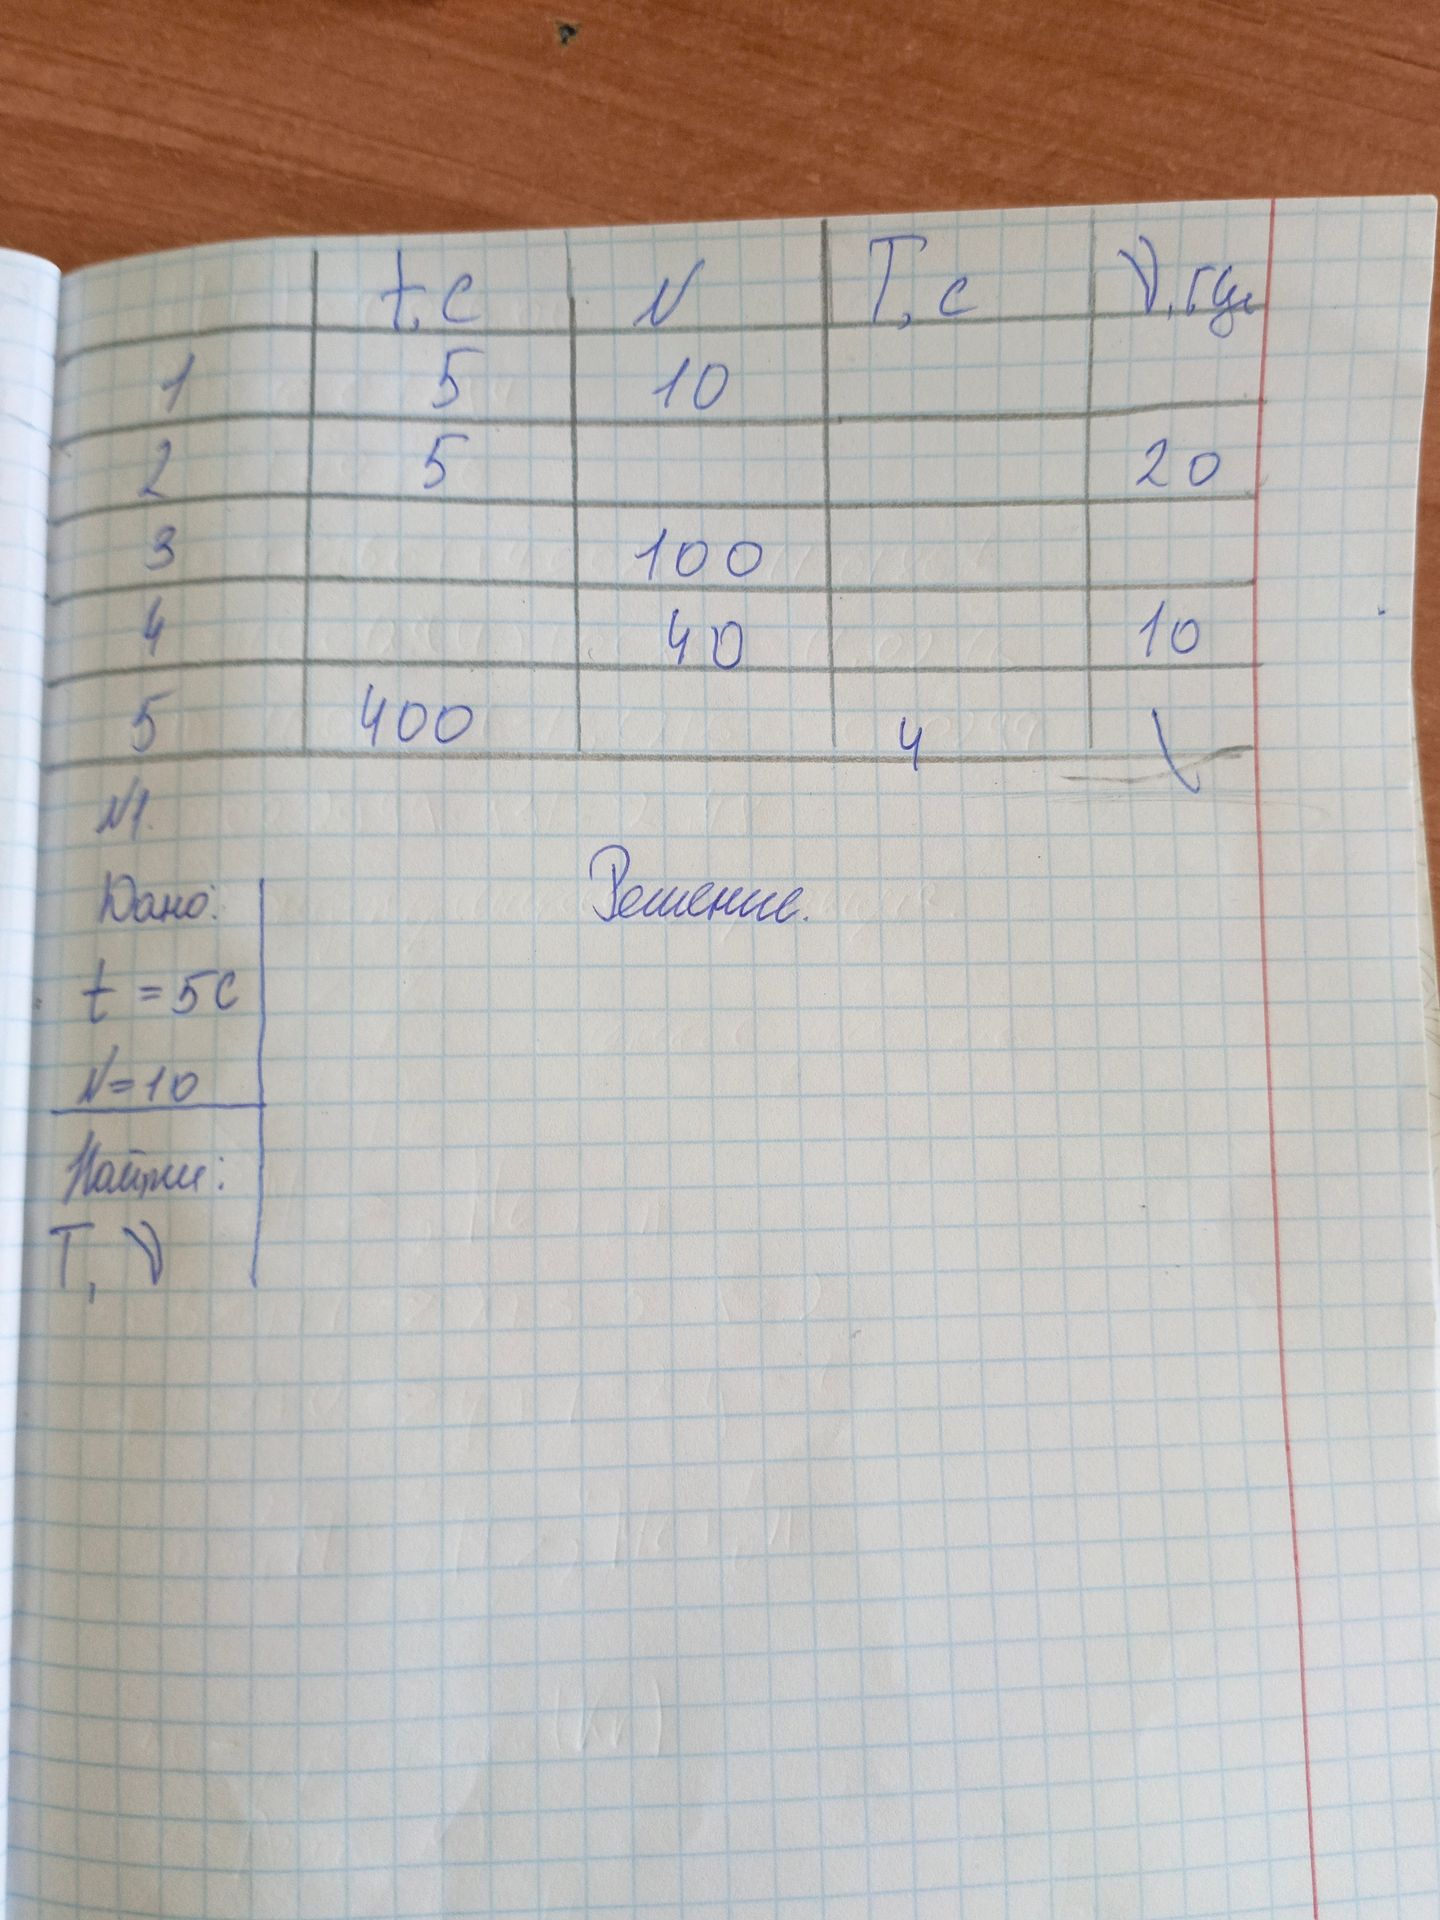 t, c N T, c ν, Гц
1 5 10
2 5 20
3 100
4 40 10
5 400 4
N1.
Дано: Решение.
t = 5 c
N = 10
Найти:
T, ν